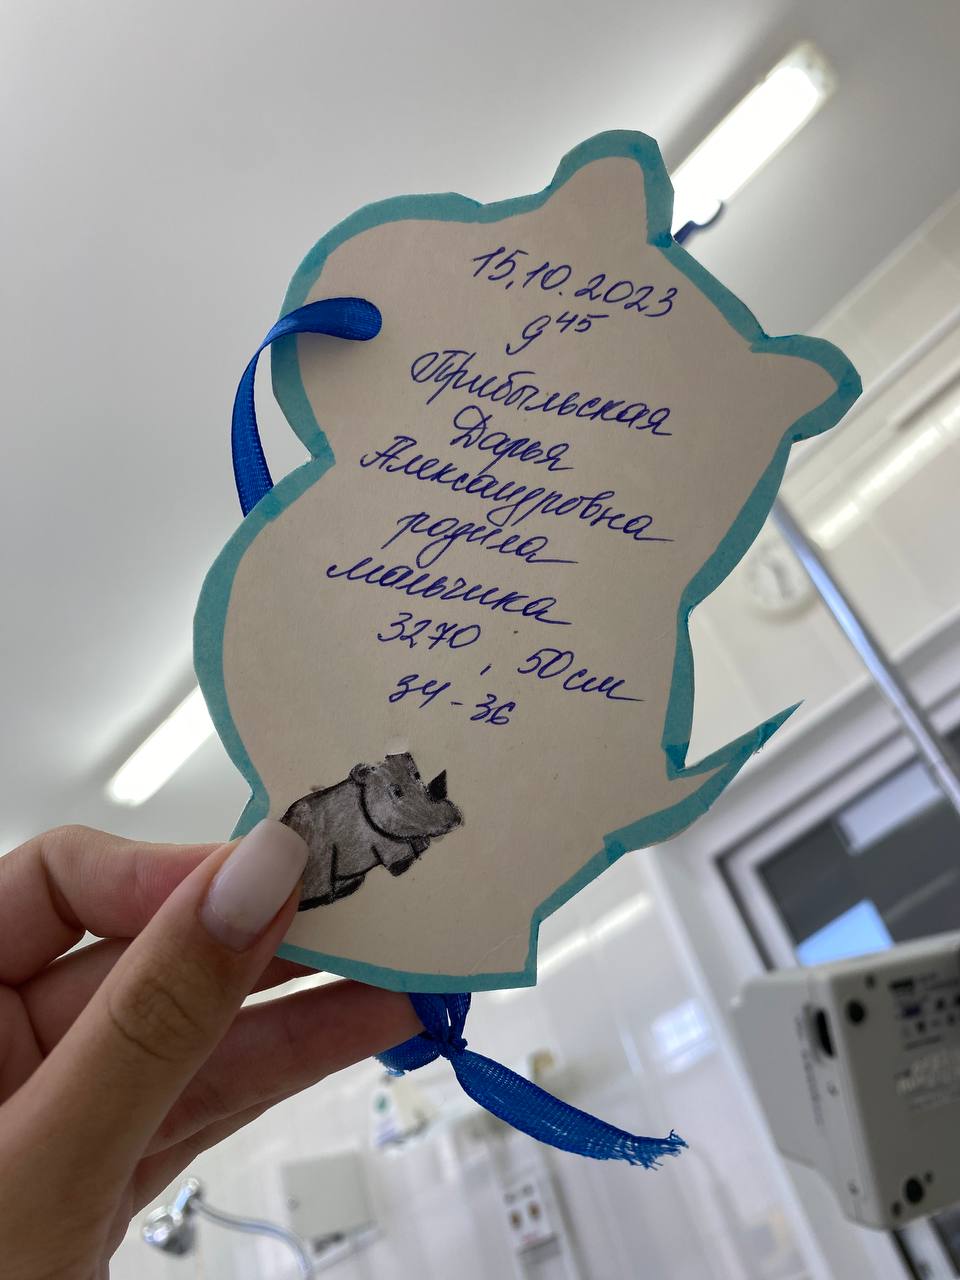 15.10.2023
9 45
Прибыльская
Дарья
Александровна
родила
мальчика
3270, 50см
34-36